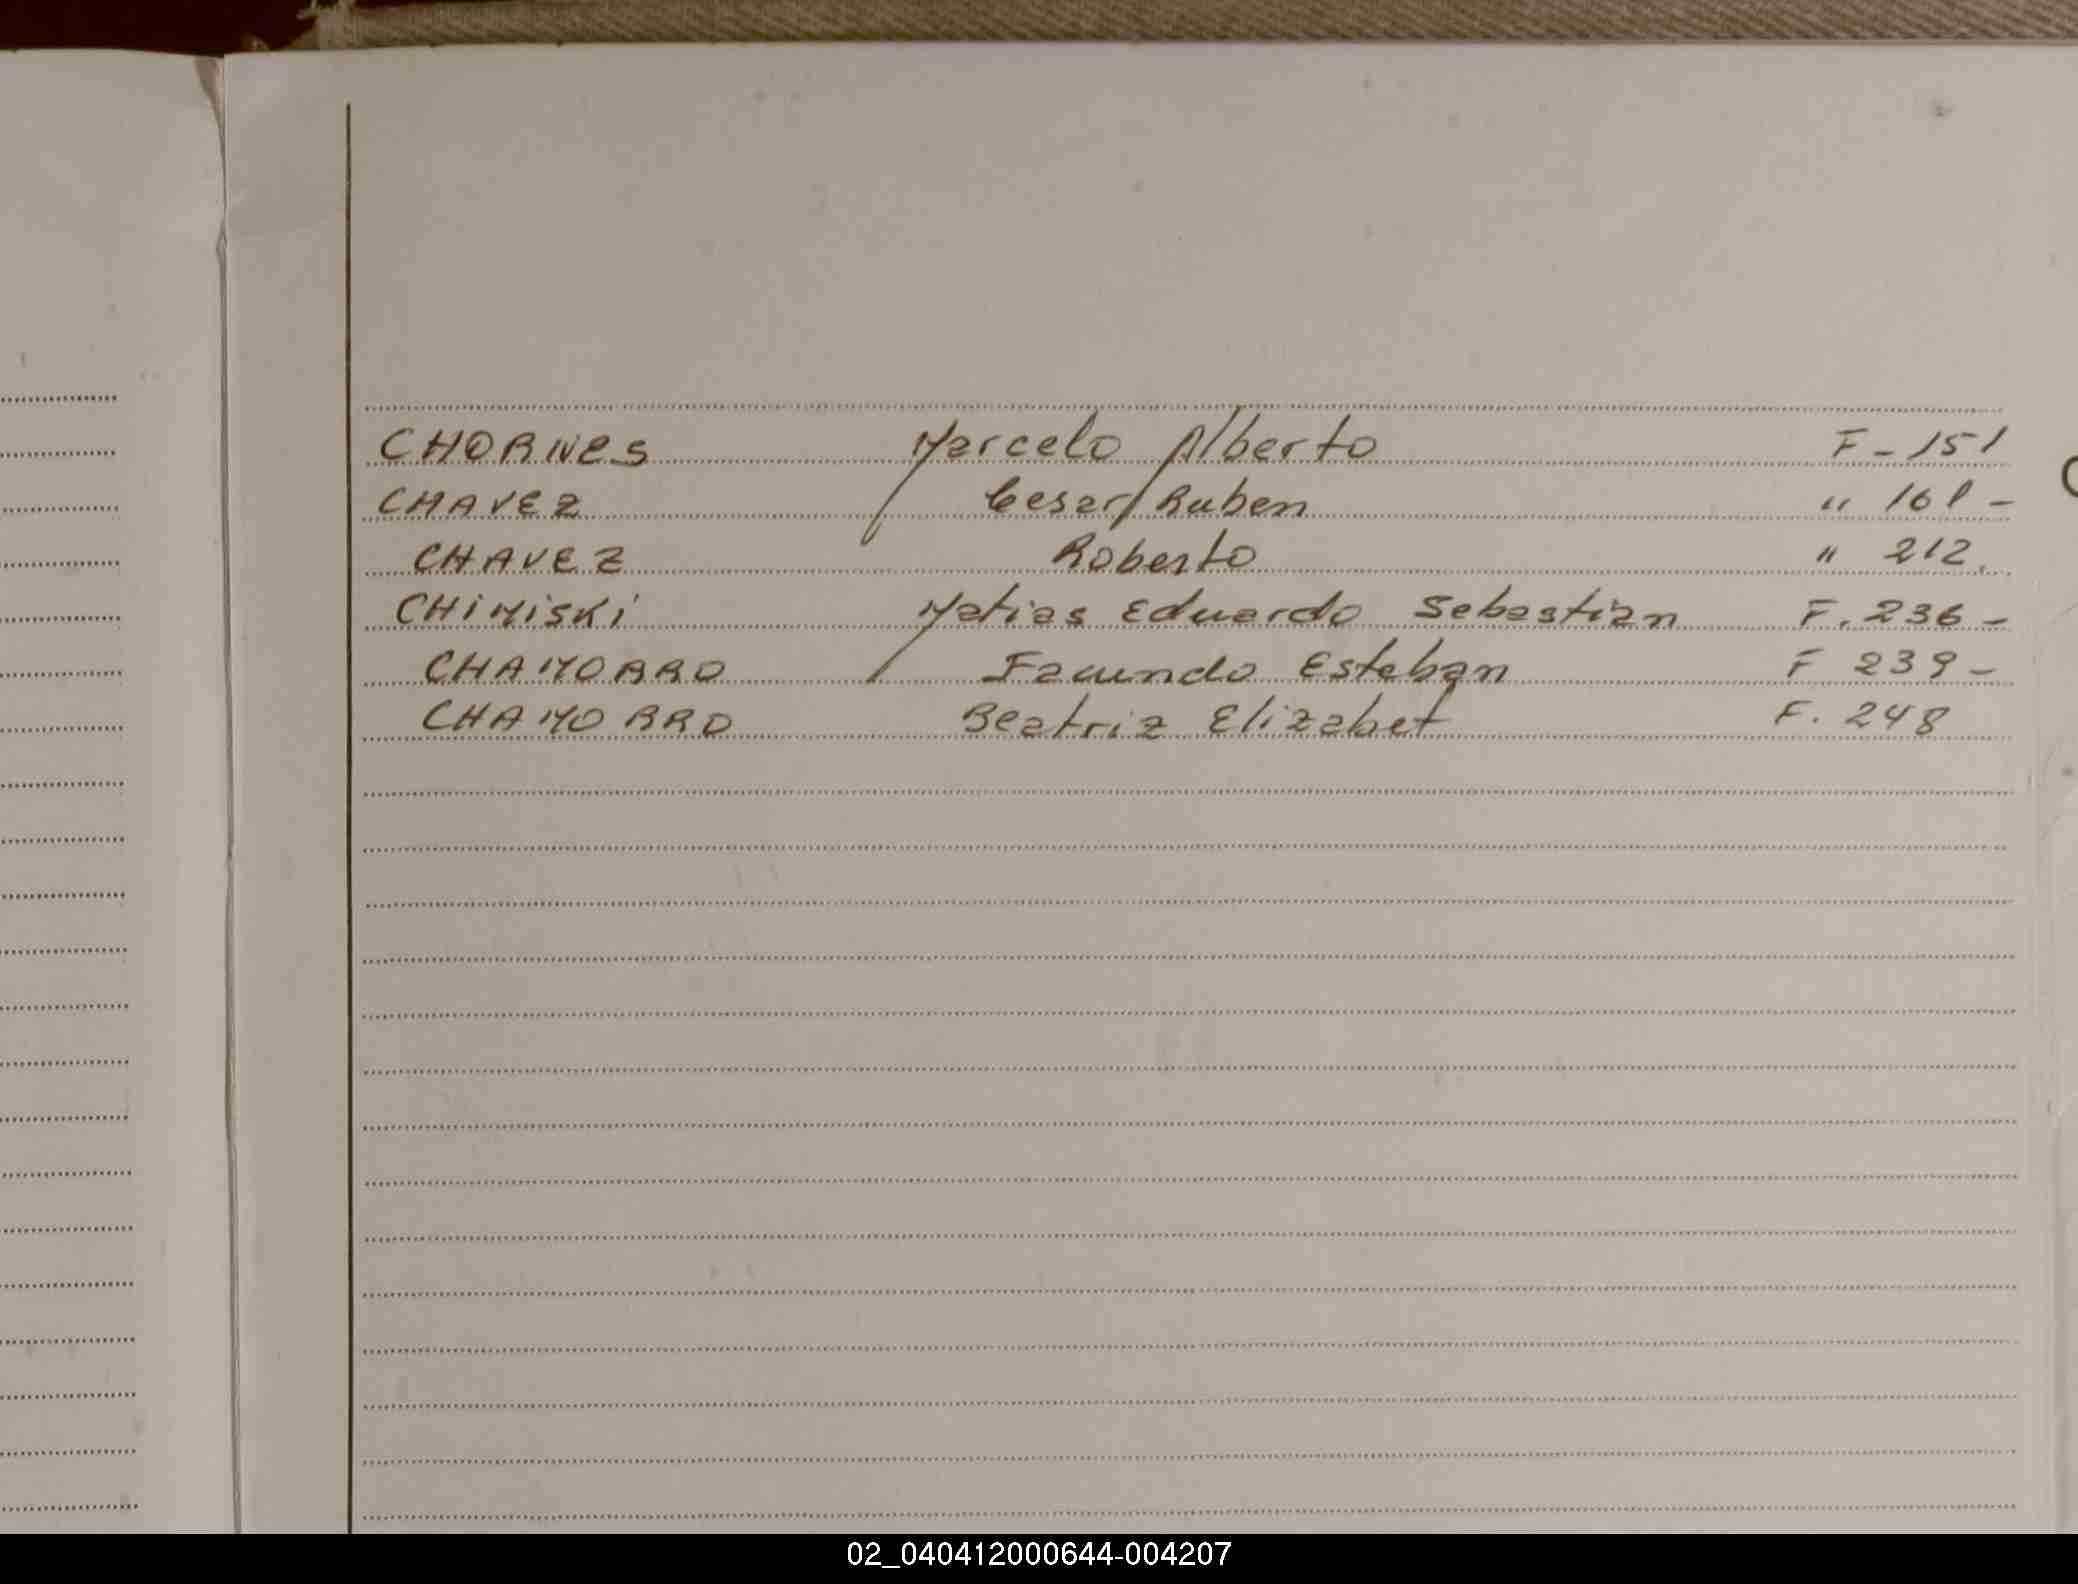 CHORNES Marcelo Alberto F - 151
CHAVEZ Cesar Ruben " 161 -
CHAVEZ Roberto " 212.
CHIMISKI Matias Eduardo Sebastian F. 236 -
CHAMORRO Facundo Esteban F 239 -
CHAMORRO Beatriz Elizabet F. 248
02_040412000644-004207